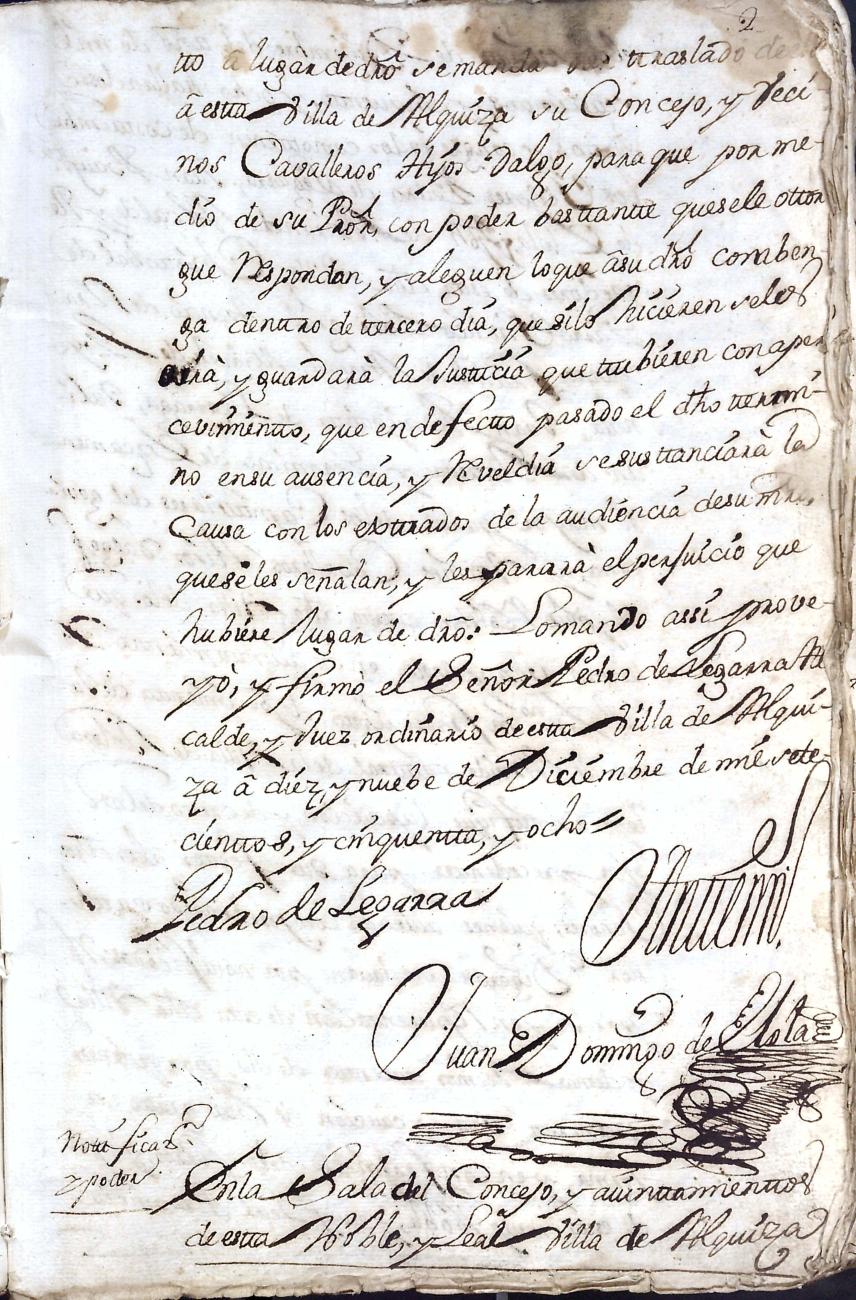 2
tto a lugar de dro se manda dar traslado de
â estta Villa de Alquiza su Concejo, y Veci-
nos Cavalleros Hijos Dalgo, para que por me-
dio de su Pror, con poder basttantte que sele ottor
gue Respondan, y aleguen lo que âsu dro comben
ga denttro de ttercero dia, que silo hicieren seles
oirà, y guardarà la Justticia que ttubieren con aper
cevimientto, que en defectto pasado el dho ttermi-
no en su ausencia, y Reveldia se susttanciarà la
Causa con los esttrados de la audiencia de su mrd.
que se les señalan, y les pararà el perjuicio que
hubiere lugar de dro: Lo mando assi prove-
yò, y firmò el Señor Pedro de Legarra Al
calde, y Juez ordinario de estta Villa de Alqui-
za â diez, y nuebe de Diciembre de mil sete-
cienttos, y cinquentta, y ocho=
Pedro de Legarra
Antemi.
Juan Domingo de
Nottificazn
y poder
En la Sala del Concejo, y aiunttamienttos
de estta Noble, y Leal Villa de Alquiza